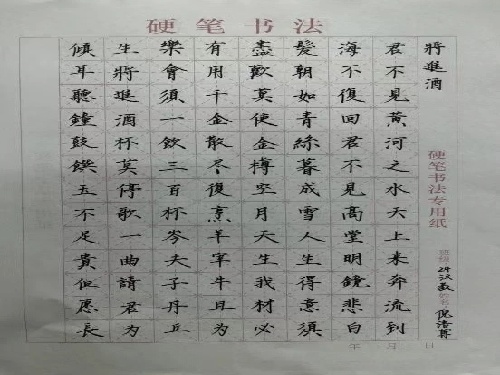 硬笔书法
將進酒
君不見黃河之水天上来奔流到
海不復回君不見高堂明鏡悲白
髮朝如青絲暮成雪人生得意須
盡歡莫使金樽空月天生我材必
有用千金散尽復烹羊宰牛且为
樂會須一飲三百杯岑夫子丹丘
生將進酒杯莫停歌一曲請君为
傾耳聽鐘鼓饌五不足貴但愿長
硬笔书法专用纸
班级 24汉教 姓名 倪
年 月 日